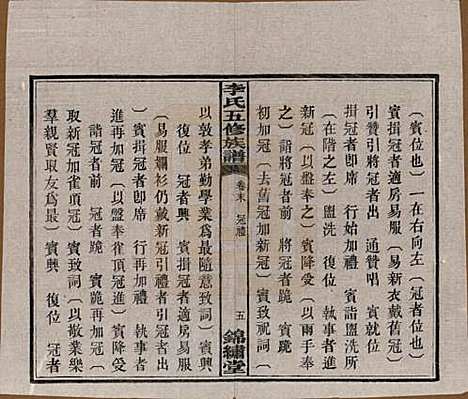 （賓位也）一在右向左（冠者位也）
賓揖冠者適房易服（易新衣戴舊冠）
引贊引將冠者出　通贊唱　賓就位
賓揖冠者卽席　行始加禮　賓詣盥洗所
（在階之左）盥洗　復位　執事者進
新冠（以盤奉之）賓降受（以兩手奉
之）詣將冠者前　將冠者跪　賓跪
初加冠（去舊冠加新冠）賓致祝詞（
李氏五修族譜
卷末　冠禮
五　錦繡堂
以敦孝弟勤學業爲最隨意致詞）賓興
復位　冠者興　賓揖冠者適房易服
（易服襴衫仍戴新冠引禮者引冠者出
）賓揖冠者卽席　行再加禮　執事者
進再加冠（以盤奉雀頂冠進）賓降受
詣冠者前　冠者跪　賓跪再加冠（
除新冠加雀頂冠）賓致詞（以敬業樂
羣親賢取友爲最）賓興　復位　冠者